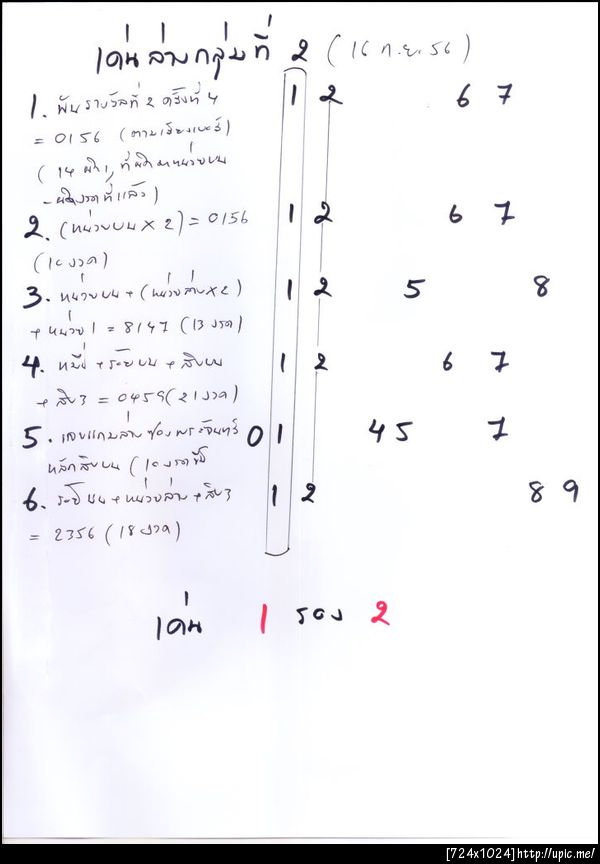 เด่นล่างกลุ่มที่ 2 (16 ก.ย. 56)
1. พันรางวัลที่ 2 ครั้งที่ 4 1 2 6 7
= 0156 (ตามเรียงเบอร์)
(14
2. (หน่วยบน x 2) = 0156 1 2 6 7
(10 งวด)
3. หน่วยบน + (หน่วยล่าง x 2) 1 2 5 8
+ หน่วย 1 = 8147 (13 งวด)
4. หมื่น + ร้อยบน + สิบบน 1 2 6 7
+ สิบ 3 = 0459 (21 งวด)
5. 0 1 4 5 7
หลักสิบบน (10 งวด
6. ร้อยบน + หน่วยล่าง + สิบ 3 1 2 8 9
= 2356 (18 งวด)
เด่น 1 รอง 2
[724x1024]http://upic.me/